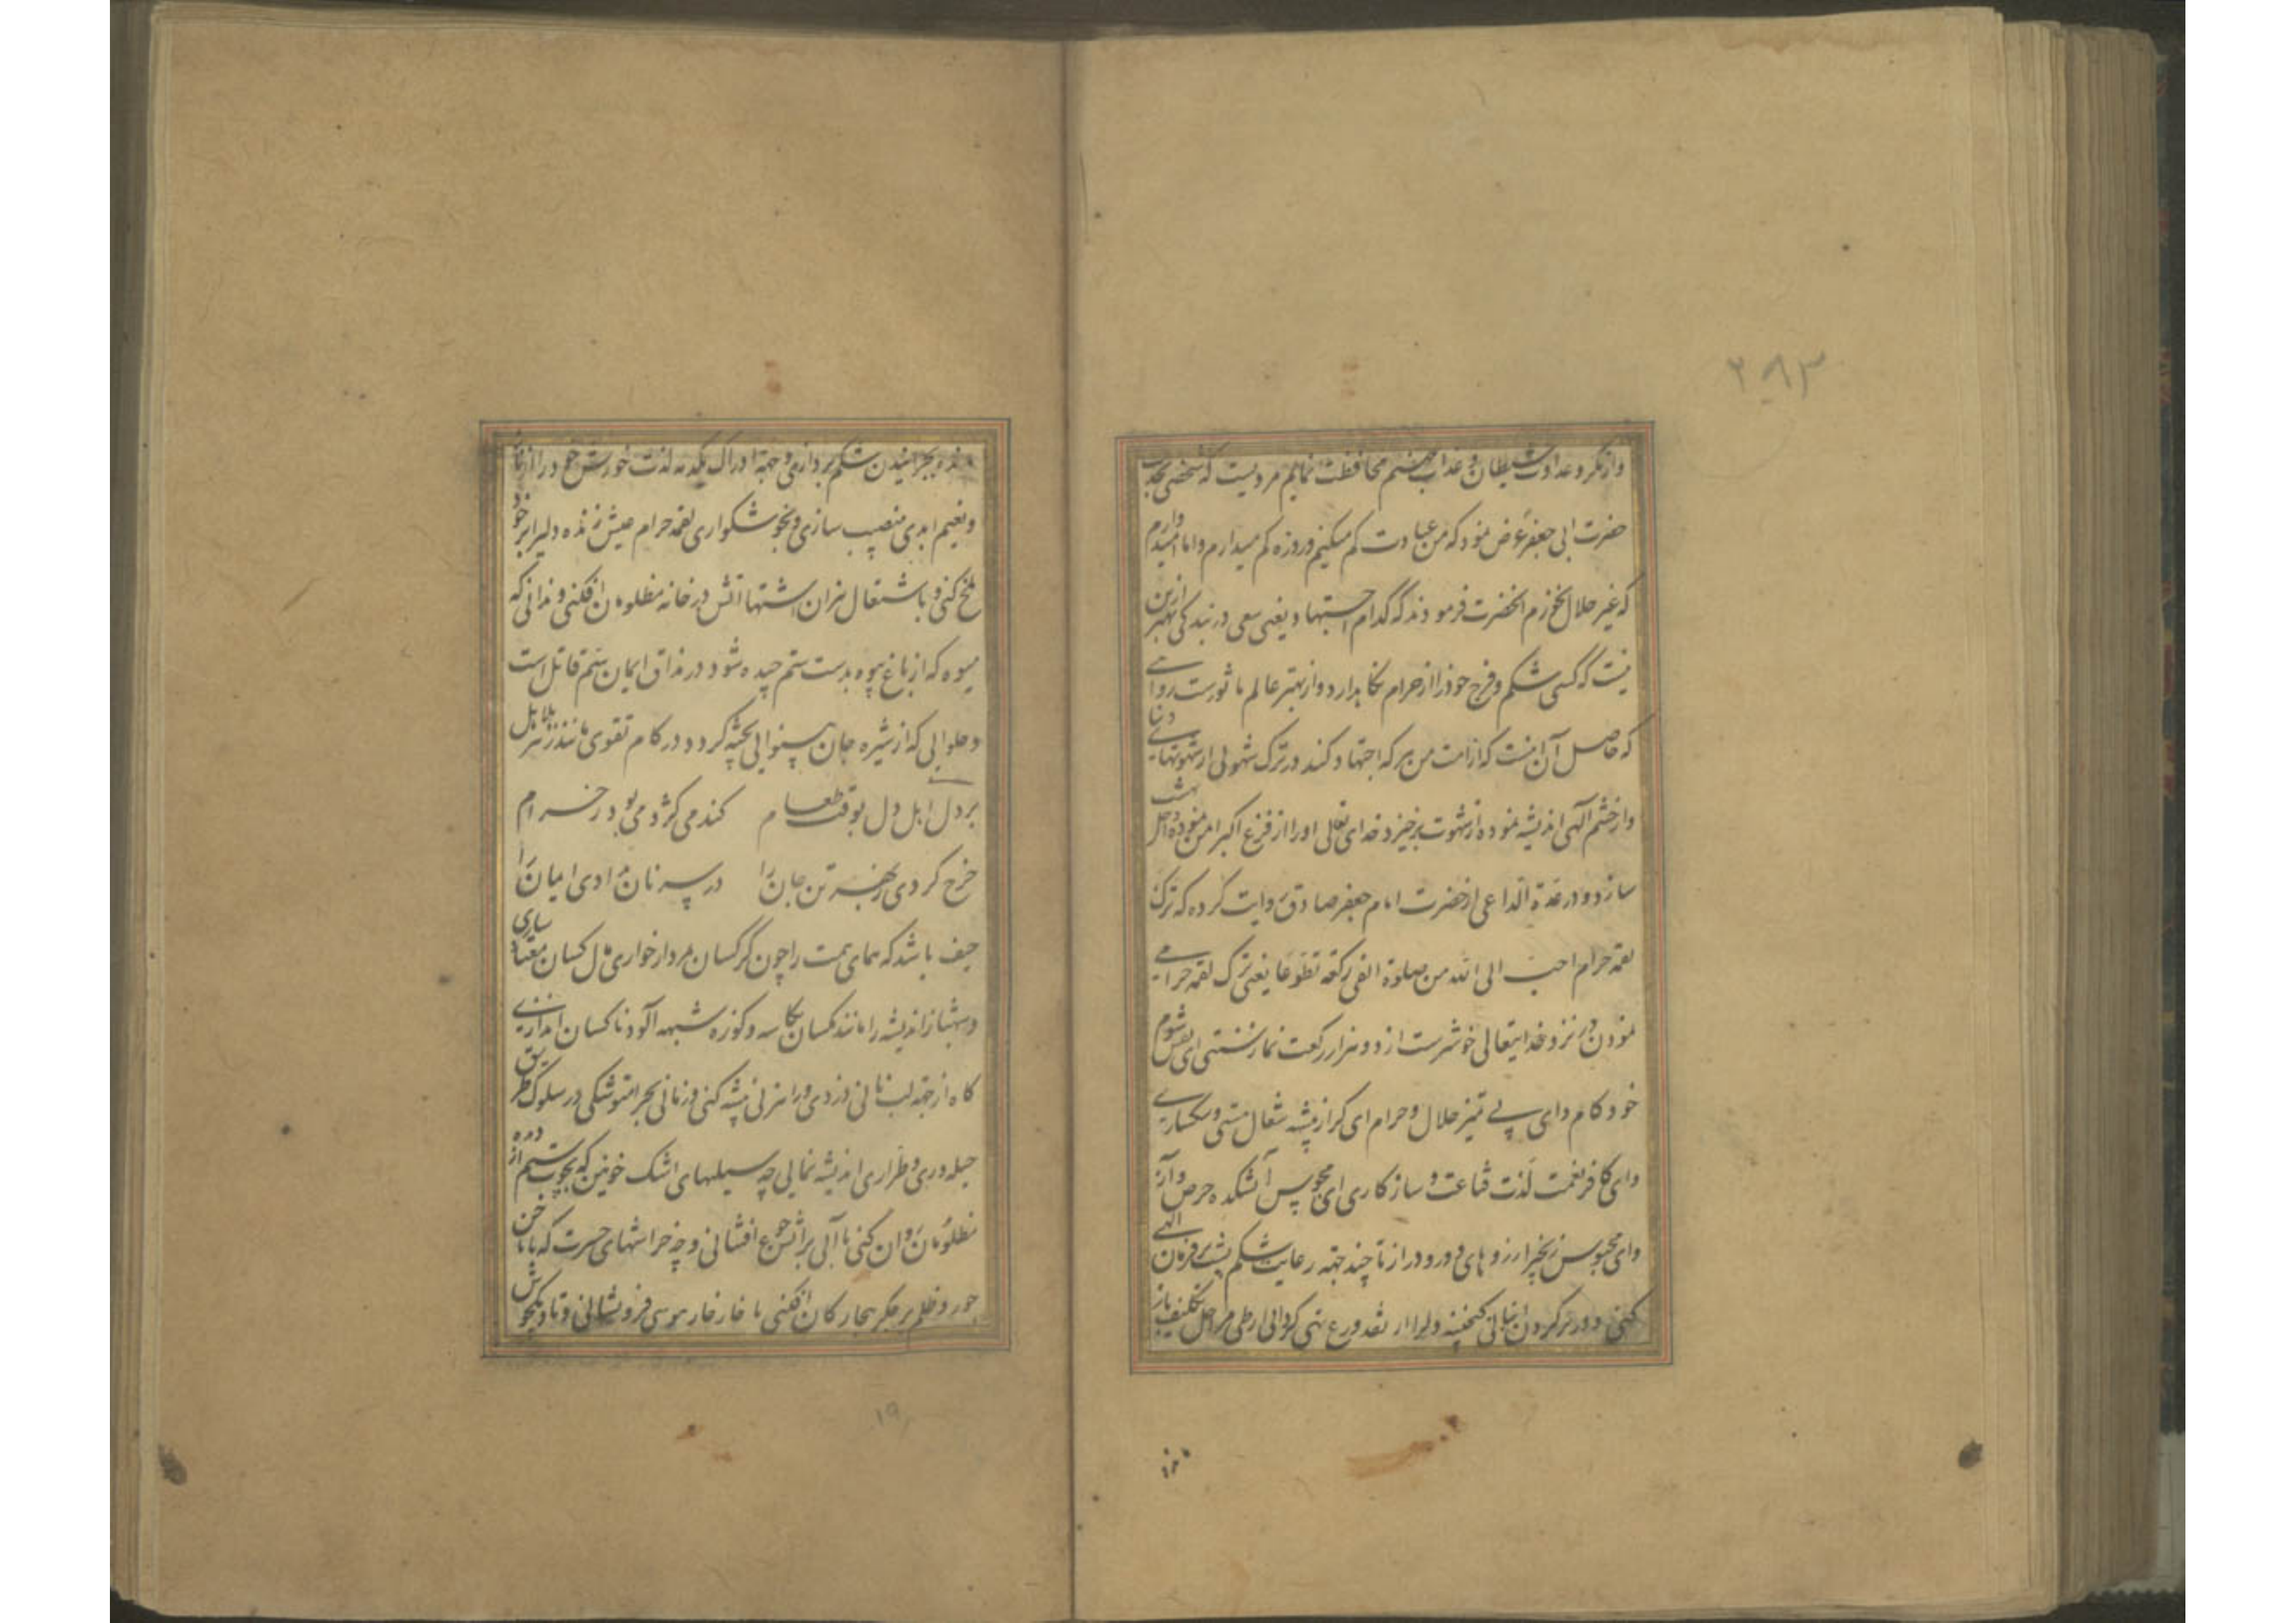 ۲۸۳
واز مکر و عداوت شیطان و عذاب جهنم محافظت نمایم مرویست که شخصی بخدمت
حضرت ابی جعفر ع عرض نمود که من عبادت کم میکنم و روزه کم میدارم و اما امیدوارم
که غیر حلال نخورم انحضرت فرمودند که کدام اجتهاد یعنی سعی در بندکی بهتر ازین
نیست که کسی شکم و فرج خود را از حرام نکاهدارد و از بهتر عالم ماثورست روایتی
که حاصل آن اینست که از امت من هر که اجتهاد کند در ترک شهوتی از شهوتهای دنیا
واز خشم آلهی اندیشه نموده از شهوت برخیزد خدای تعالی او را از فزع اکبر امن نموده داخل بهشت
سازد و در عدة الداعی از حضرت امام جعفر صادق روایت کرده که ترک
لقمة حرام احب الی الله من صلوة الفی رکعة تطوعا یعنی ترک لقمه حرامی
نمودن در نزد خدایتعالی خوشترست از دو هزار رکعت نماز سنتی ای نفس شوم
خودکام وای بی تمیز حلال و حرام ای کراز پیشه شغال مستی و سکساری
وای کافر نعمت لذت قناعت و سازکاری ای مجوس آتشکده حرص و آز
وای محبوس زنجیر ارزوهای دور و دراز تا چند جهة رعایت شکم پشت بر فرمان الهی
کنی و در پر کردن انبانی کنجینه دلرا از نقد ورع تهی کردانی از طی مراحل تکلیف باز
مانده بچرانیدن شکم پردازی و جهة ادراک یکدمه لذت خورش خود را از
ونعیم ابدی بی نصیب سازی و بخوشکواری لقمه حرام عیش زنده دلیرا بر خود
تلخ کنی و باشتعال نیران اشتها آتش در خانه مظلومان افکنی و ندانی که
میوه که از باغ بیوه بدست ستم چیده شود در مذاق ایمان سم قاتل است
وحلوایی که از شیره جان بینوایی پخته کردد در کام تقوی مانند زهر هلاهل
بر دل اهل دل بوقت طعام کندمی کژدمی بود ز حرام
خرج کردی بهر تن جان را در سر نان دادی ایمان را
حیف باشد که همای همت را چون کرکسان مردار خواری مال کسان معتاد سازی
وشهباز اندیشه را مانند مکسان بکاسه و کوزه شبهه آلود ناکسان اندازی
کاه از جهة لب نانی دزدی و راهزنی پیشه کنی و زمانی بحرامتوشکی در سلوک طریق
حیله وری و طراری اندیشه نمایی چه سیلهای اشک خونین که بچوب ستم از دیده
مظلومان روان کنی تا آبی بر آتش جوع افشانی و چه خراشهای حسرت که با ناخن
جور و ظلم بر جکر بیچارکان افکنی تا خار خار هوسی فرونشانی
۱۹
مانده